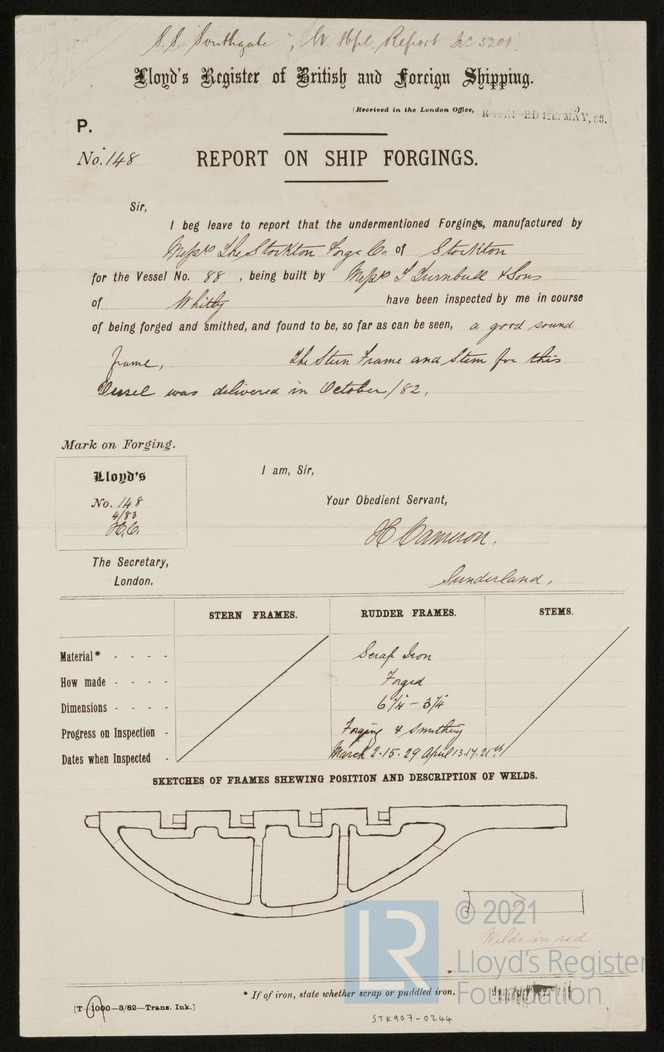 S.S. Southgate, W. Hpl. Report No 5201.
Lloyd's Register of British and Foreign Shipping.
(Received in the London Office, MAY, 83.
P.
No. 148
REPORT ON SHIP FORGINGS.
Sir,
I beg leave to report that the undermentioned Forgings, manufactured by
Messrs The Stockton Forge Co of Stockton
for the Vessel No. 88, being built by Messrs T Turnbull & Sons
of Whitby have been inspected by me in course
of being forged and smithed, and found to be, so far as can be seen, a good sound
frame, The Stern Frame and Stem for this
Vessel was delivered in October/82.
Mark on Forging.
Lloyd's
No. 148
4/83
H.C.
I am, Sir,
Your Obedient Servant,
H Cameron.
Sunderland,
The Secretary,
London.
STERN FRAMES. RUDDER FRAMES. STEMS.
Material* - - - - Scrap Iron
How made - - - - Forged
Dimensions - - - - 6¼ - 3¼
Progress on Inspection - Forging & Smithing
Dates when Inspected - March 2.15.29 April 13.17.21st
SKETCHES OF FRAMES SHEWING POSITION AND DESCRIPTION OF WELDS.
Welds in red
© 2021
LR
Lloyd's Register
Foundation
* If of iron, state whether scrap or puddled iron.
[T 1000—3/82—Trans. Ink.]
STK907-0244